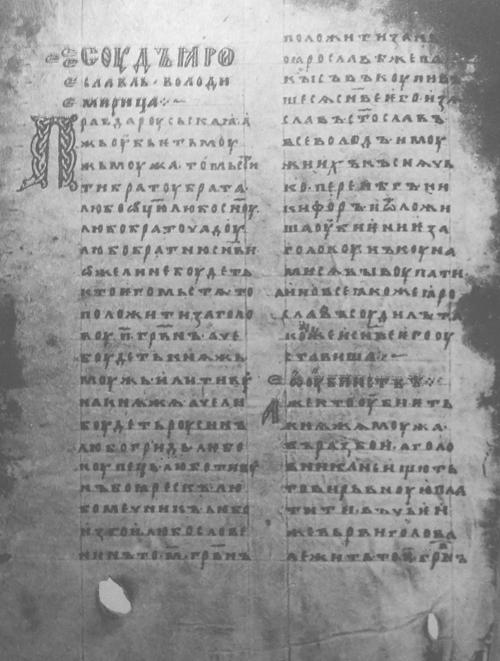 СОУДЪ ꙖРО
СЛАВЛЬ · ВОЛОДИ
МИРИЦА :~
ПРАВДА РОУСЬСКАꙖ · А
ЖЬ ОУБЬѤТЬ МОУ
ЖЬ МОУЖА · ТО МЬСТИ
ТИ БРАТОУ БРАТА ·
ЛЮБО ѾЦЮ ЛЮБО СН҃ОУ ·
ЛЮБО БРАТОУЧАДОУ
ЛЮБО БРАТНЮ СН҃ВИ
ѠЖЕ ЛИ НЕ БОУДЕТЬ
КТО ѤГО МЬСТѦ · ТО
ПОЛОЖИТИ ЗА ГОЛО
ВОУ · П҃ · ГРВ҃НЪ · АЧЕ
БОУДЕТЬ КНѦЖЬ
МОУЖЬ · ИЛИ ТИВОУ
НА КНѦЖА · АЧЕ ЛИ
БОУДЕТЬ РОУСИНЪ
ЛЮБО ГРИДЬ · ЛЮБО
КОУПЕЦЬ · ЛЮБО ТИВОУ
НЪ БОꙖРЕСКЪ · ЛЮ
БО МЕЧНИКЪ · ЛИБО
ИЗГОИ · ЛЮБО СЛОВЕ
НИНЪ · ТО · М҃ · ГРВ҃НЪ
ПОЛОЖИТИ ЗА НЬ
ПО ꙖРОСЛАВѢ ЖЕ ПА
КЫ СЪВЪКОУПИВЪ
ШЕСѦ СН҃ВЕ ѤГО · ИЗѦ
СЛАВЪ · СТ҃ОСЛАВЪ ·
ВСЕВОЛОДЪ · И МОУ
ЖИ ИХЪ · КЪСНѦЧЬ
КО · ПЕРЕНѢГЪ · НИ
КИФОРЪ · И ѾЛОЖИ
ША ОУБИѤНИѤ ЗА
ГОЛОВОУ · НЪ КОУНА
МИ СѦ ВЫКОУПАТИ ·
А ИНО ВСЕ ꙖКО ЖЕ ꙖРО
СЛАВЪ СОУДИЛЪ · ТА
КОЖЕ И СН҃ВЕ ѤГО ОУ
СТАВИША :~
Ѡ ОУБИИСТВѢ :
АЖЕ КТО ОУБИѤТЬ
КНѦЖА МОУЖА ·
ВЪ РАЗБОИ · А ГОЛО
ВНИКА НЕ ИЩЮТЬ
ТО ВИРЬВНОУЮ ПЛА
ТИТИ · ВЪ ЧЬѤИ
ЖЕ ВЬРВИ ГОЛОВА
ЛЕЖИТЬ · ТО П҃ ГРВ҃НЪ